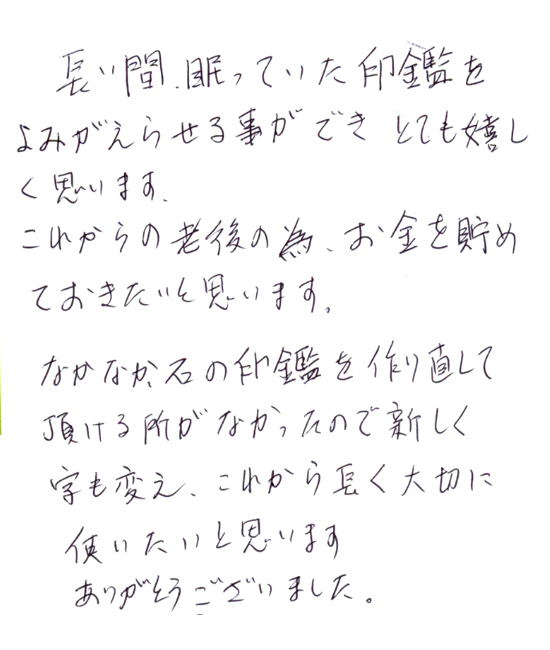 長い間、眠っていた印鑑を
よみがえらせる事ができ とても嬉し
く思います。
これからの老後の為、お金を貯め
ておきたいと思います。
なかなか、石の印鑑を作り直して
頂ける所がなかったので新しく
字も変え、これから長く大切に
使いたいと思います
ありがとうございました。